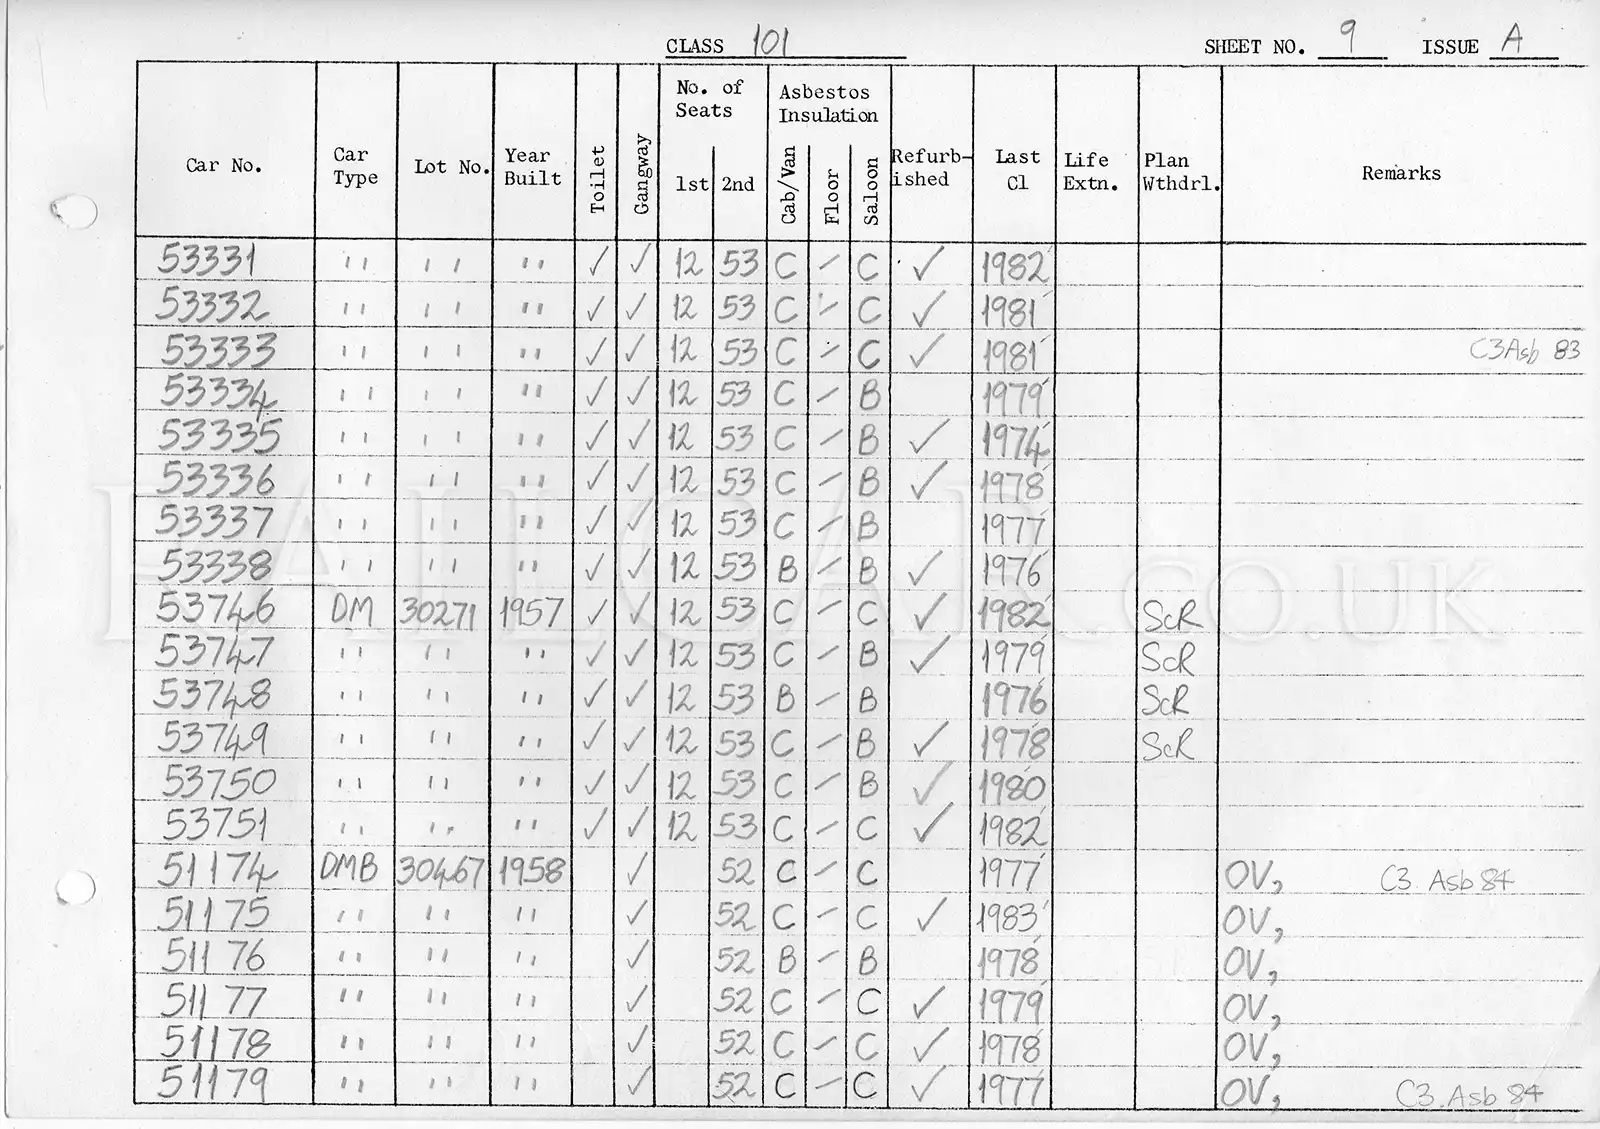 CLASS 101 SHEET NO. 9 ISSUE A
Car No. Car Type Lot No. Year Built Toilet Gangway No. of Seats 1st 2nd Asbestos Insulation Cab/Van Floor Saloon Refurb-ished Last Cl Life Extn. Plan Wthdrl. Remarks
53331 " " " ✓ ✓ 12 53 C - C ✓ 1982
53332 " " " ✓ ✓ 12 53 C - C ✓ 1981
53333 " " " ✓ ✓ 12 53 C - C ✓ 1981 C3 Asb 83
53334 " " " ✓ ✓ 12 53 C - B 1979
53335 " " " ✓ ✓ 12 53 C - B ✓ 1974
53336 " " " ✓ ✓ 12 53 C - B ✓ 1978
53337 " " " ✓ ✓ 12 53 C - B 1977
53338 " " " ✓ ✓ 12 53 B - B ✓ 1976
53746 DM 30271 1957 ✓ ✓ 12 53 C - C ✓ 1982 ScR
53747 " " " ✓ ✓ 12 53 C - B ✓ 1979 ScR
53748 " " " ✓ ✓ 12 53 B - B 1976 ScR
53749 " " " ✓ ✓ 12 53 C - B ✓ 1978 ScR
53750 " " " ✓ ✓ 12 53 C - B ✓ 1980
53751 " " " ✓ ✓ 12 53 C - C ✓ 1982
51174 DMB 30467 1958 ✓ 52 C - C 1977 OV, C3. Asb 84
51175 " " " ✓ 52 C - C ✓ 1983 OV,
51176 " " " ✓ 52 B - B 1978 OV,
51177 " " " ✓ 52 C - C ✓ 1979 OV,
51178 " " " ✓ 52 C - C ✓ 1978 OV,
51179 " " " ✓ 52 C - C ✓ 1977 OV, C3. Asb 84
RAILCAR.CO.UK